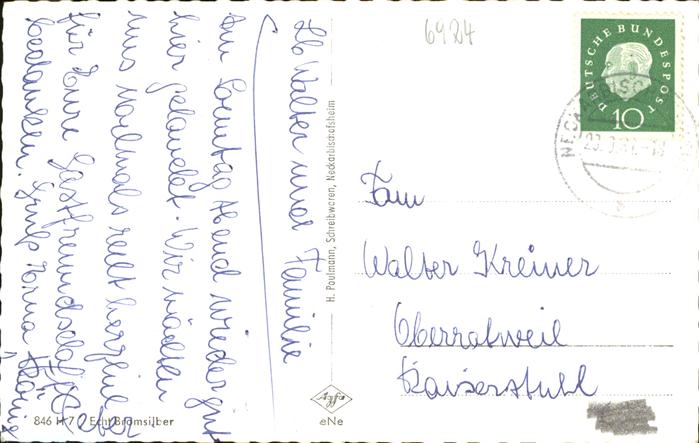 Lb Walter und Familie
Am Sonntag Abend wieder gut
hier gelandet. Wir möchten
uns nochmals recht herzlich
für Eure Gastfreundschaft
bedanken. Gruß
H. Paulmann, Schreibwaren, Neckarbischofsheim
846 H 7 Echt Bromsilber
Agfa
eNe
6424
DEUTSCHE BUNDESPOST
10
Fam
Walter Kreiner
Oberrotweil
Kaiserstuhl